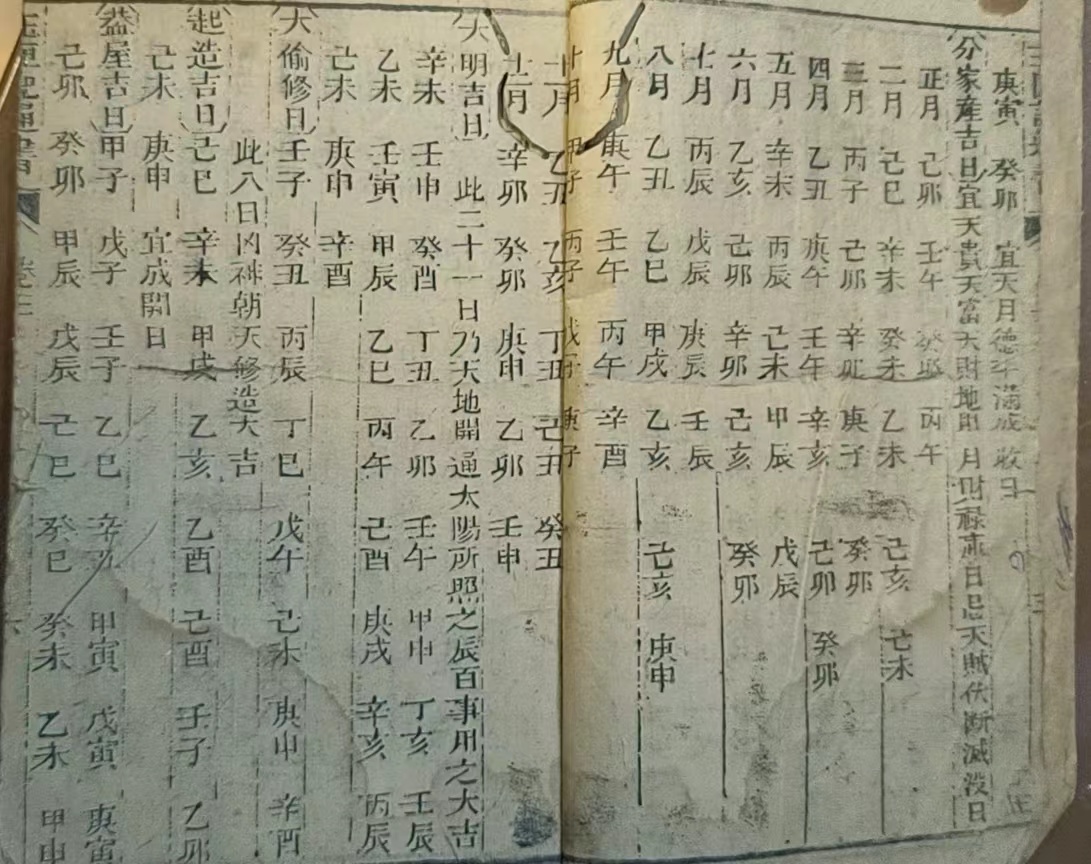 庚寅 癸卯 宜天月德平滿成收日
分家產吉日宜天貴天富天財地財月財祿庫日忌天賊伏斷滅沒日
正月 己卯 壬午 癸卯 丙午
二月 己巳 辛未 癸未 乙未 己亥 己未
三月 丙子 己卯 辛卯 庚子 癸卯
四月 乙丑 庚午 壬午 辛亥 己卯 癸卯
五月 辛未 丙辰 己未 甲辰 戊辰
六月 乙亥 己卯 辛卯 己亥 癸卯
七月 丙辰 戊辰 庚辰 壬辰
八月 乙丑 乙巳 甲戌 乙亥 己亥 庚申
九月 庚午 壬午 丙午 辛酉
十月 甲子 丙子 戊子 庚子
十一月 乙丑 乙亥 丁丑 己丑 癸丑
十二月 辛卯 癸卯 庚申 乙卯 壬申
大明吉日 此二十一日乃天地開通太陽所照之辰百事用之大吉
辛未 壬申 癸酉 丁丑 乙卯 壬午 甲申 丁亥 壬辰
乙未 壬寅 甲辰 乙巳 丙午 己酉 庚戌 辛亥 丙辰
己未 庚申 辛酉
大偷修日 壬子 癸丑 丙辰 丁巳 戊午 己未 庚申 辛酉
此八日凶神朝天修造大吉
起造吉日 己巳 辛未 甲戌 乙亥 乙酉 己酉 壬子 乙卯
己未 庚申 宜成開日
蓋屋吉日 甲子 戊子 壬子 乙巳 辛丑 甲寅 戊寅 庚寅
己卯 癸卯 甲辰 戊辰 己巳 癸巳 癸未 乙未 甲申